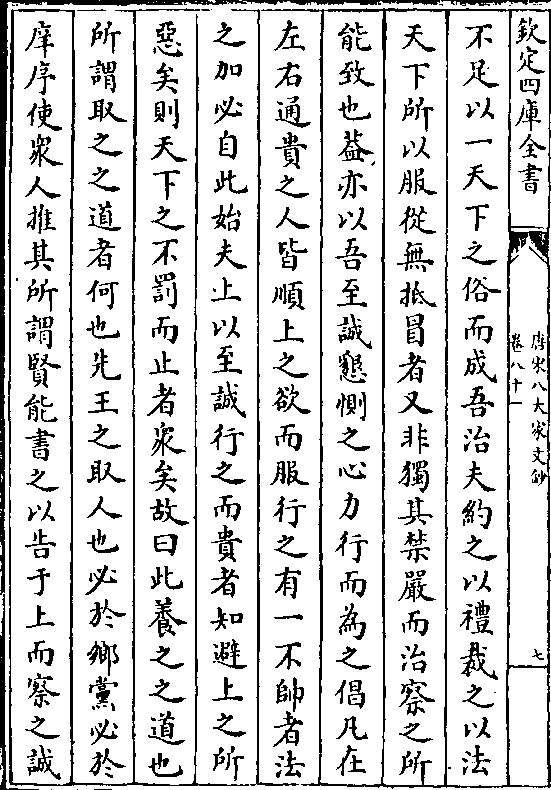 欽定四庫全書
唐宋八大家文鈔
卷八十一
七
不足以一天下之俗而成吾治夫約之以禮裁之以法
天下所以服從無抵冒者又非獨其禁嚴而治察之所
能致也葢亦以吾至誠懇惻之心力行而為之倡凡在
左右通貴之人皆順上之欲而服行之有一不帥者法
之加必自此始夫上以至誠行之而貴者知避上之所
惡矣則天下之不罰而止者衆矣故曰此養之之道也
所謂取之之道者何也先王之取人也必於鄉黨必於
庠序使衆人推其所謂賢能書之以告于上而察之誠